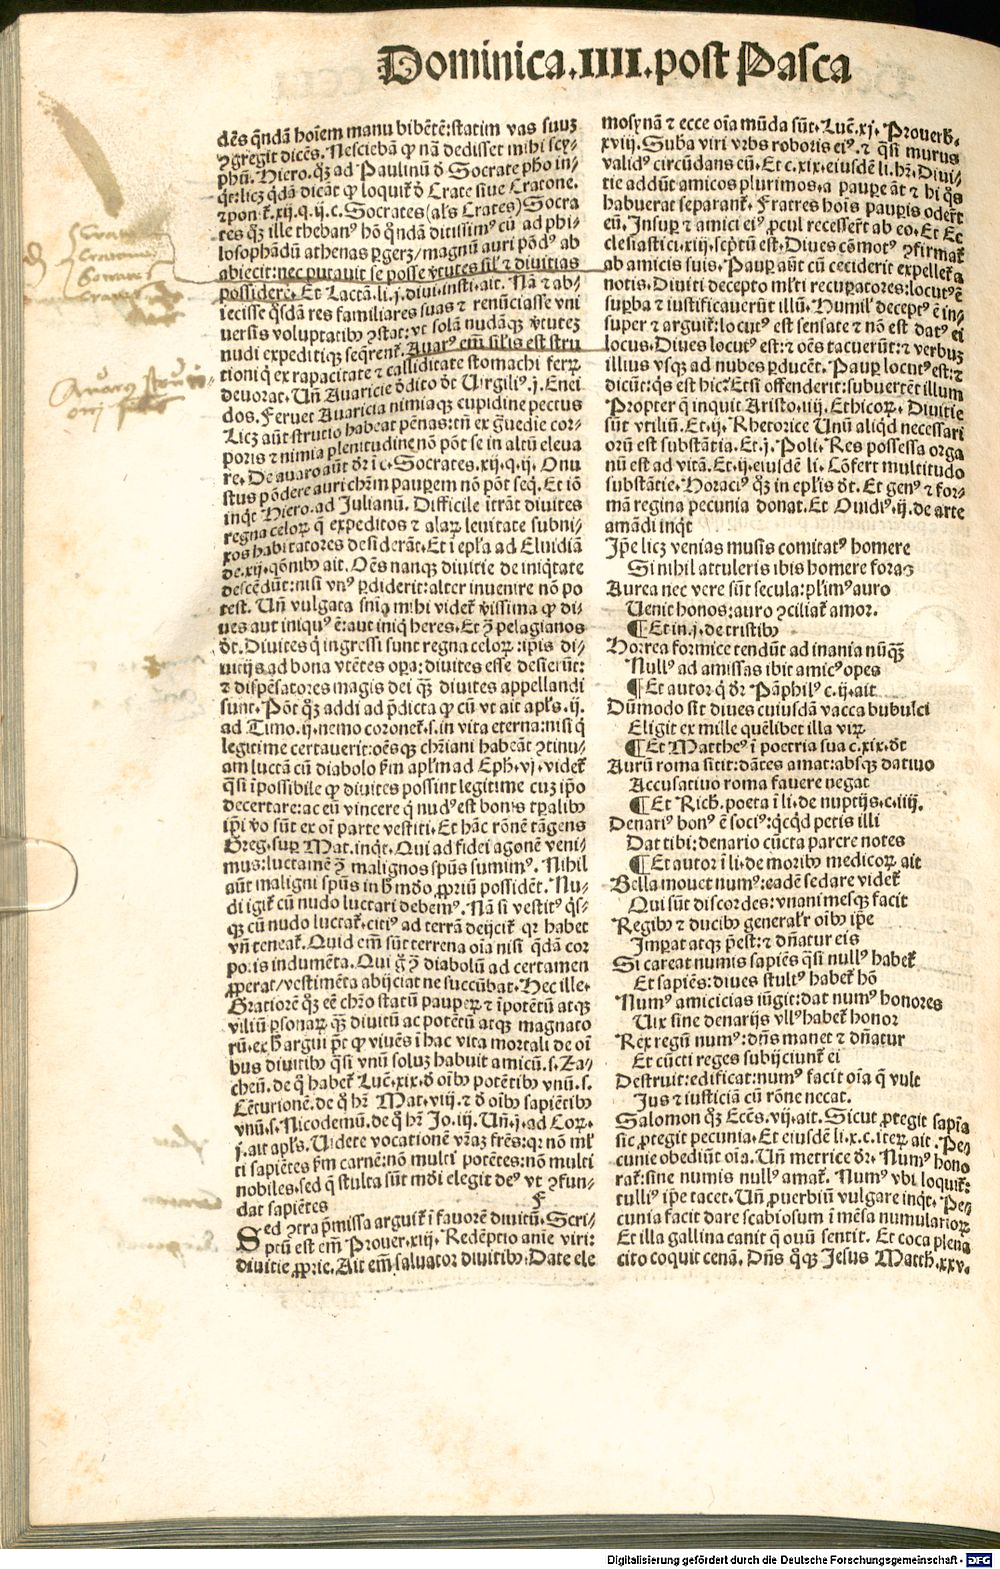 Dominica.IIII.post Pasca
dẽs q̃ndã hoĩem manu bibẽtẽ: statim vas suuʒ
ꝯgregit dicẽs. Nesciebã ꝙ nã dedisset mihi scy-
phũ. Hiero. qʒ ad Paulinũ ď Socrate pho in-
q̃t: licʒ q̃dã dicãt ꝙ loquit̃ ď Crate siue Cratone.
⁊ pon̄t̃.xij.q.ij.c. Socrates (al̃s Crates) Socra
tes qʒ ille theban⁹ hõ q̃ndã ditissim⁹ cũ ad phi-
losophãdũ athenas ꝑgerʒ/magnũ auri põd⁹ ab
abiecit: nec putauit se posse ṽtutes sil̃ ⁊ diuitias
possidere. Et Lactã. li.j. diui. insti. ait. Nã ⁊ ab-
iecisse q̃sdã res familiares suas ⁊ renũciasse vni
uersis voluptatibꝰ ꝯstat: vt solã nudãqʒ ṽtuteʒ
nudi expeditiqʒ seq̃rent̃. Auar⁹ em̃ sil̃is est stru
tioni q̃ ex rapacitate ⁊ calliditate stomachi ferꝝ
deuorat. Uñ Auaricie ď dito ďt Uirgili⁹.j. Enei
dos. Feruet Auaricia nimiaqʒ cupidine pectus
Licʒ aũt strutio habeat pẽnas: tñ ex ḡuedie cor-
poris ⁊ nimia plenitudine nõ põt se in altũ eleua
re. De auaro aũt dr̃ i c. Socrates.xij.q.ij. Onu
stus põdere auri chr̃m pauꝑem nõ põt seq̃. Et iõ
inq̃t Hiero. ad Julianũ. Difficile ĩtrãt diuites
regna celoꝝ q̃ expeditos ⁊ alaꝝ leuitate subni-
xos habitatores desiderãt. Et ĩ epl̃a ad Eluidiã
de.xij. q̃õnibꝰ ait. Oẽs nanqʒ diuitie de iniq̃tate
descẽdũt: nisi vn⁹ ꝑdiderit: alter inuenire nõ po
test. Uñ vulgata sn̄ia mihi videt̃ ṽissima ꝙ di-
ues aut iniqu⁹ ẽ: aut iniq̃ heres. Et ꝯ̃ pelagianos
ďt. Diuites q̃ ingressi sunt regna celoꝝ: ip̃is di-
uitijs ad bona vtẽtes oꝑa: diuites esse desierũt:
⁊ dispẽsatores magis dei qʒ̃ diuites appellandi
sunt. Põt qʒ addi ad p̃dicta ꝙ cũ vt ait apl̃s.ij.
ad Timo.ij. nemo coronet̃.s. in vita eterna: nisi q̃
legitime certauerit: oẽsqʒ chr̃iani habeãt ꝯtinu-
am luctã cũ diabolo ẜm apl̃m ad Eph.vj. videt̃
q̃si ĩpossibile ꝙ diuites possint legitime cuʒ ip̃o
decertare: ac eũ vincere q̃ nud⁹ est bonis tꝑalibꝰ
ip̃i ṽo sũt ex oĩ parte vestiti. Et hãc rõnẽ tãgens
Greg. suꝑ Mat. inq̃t. Qui ad fidei agonẽ veni-
mus: luctamẽ ꝯ̃ malignos spũs sumim⁹. Nihil
aũt maligni spũs in h̃ mũdo ꝓpriũ possidẽt. Nu-
di igit̃ cũ nudo luctari debem⁹. Nã si vestit⁹ q̃s-
qʒ cũ nudo luctat̃: citi⁹ ad terrã deijcit̃ qꝛ habet
vñ teneat̃. Quid em̃ sũt terrena oĩa nisi q̃dã cor
poris indumẽta. Qui ḡ ꝯ̃ diabolũ ad certamen
ꝓperat/vestimẽta abijciat ne succũbat. Hec ille.
Gratiorẽ qʒ eẽ chr̃o statũ pauꝑeꝝ ⁊ ĩpotẽtũ atqʒ
viliũ ꝑsonaꝝ qʒ̃ diuitũ ac potẽtũ atqʒ magnato
rũ. ex h̃ argui p̃t ꝙ viuẽs ĩ hac vita mortali de oĩ
bus diuitibꝰ q̃si vnũ soluʒ habuit amicũ.s. Za-
cheũ. de q̃ habet̃ Luč.xix. ď oĩbꝰ potẽtibꝰ vnũ.s.
Cẽturionẽ. de q̃ hr̃ Mat.viij. ⁊ ď oĩbꝰ sapiẽtibꝰ
vnũ.s. Nicodemũ. de q̃ hr̃ Jo.iij. Uñ.j. ad Coꝝ.
j. ait apl̃s. Uidete vocationẽ vr̃aʒ fr̃es: qꝛ nõ ml̃
ti sapiẽtes ẜm carnẽ: nõ multi potẽtes: nõ multi
nobiles. sed q̃ stulta sũt mũdi elegit de⁹ vt ꝯfun-
dat sapiẽtes F
Sed ꝯtra p̃missa arguit̃ ĩ fauorẽ diuitũ. Scri-
ptũ est em̃ Prouer.xiij. Redẽptio anie viri:
diuitie ꝓprie. Ait em̃ saluator diuitibꝰ. Date ele
mosynã ⁊ ecce oĩa mũda sũt. Luč.xj. Prouerb.
xviij. Suba viri vrbs roboris ei⁹. ⁊ q̃si murus
valid⁹ circũdans eũ. Et c.xix. eiusdẽ li. hr̃. Diui-
tie addũt amicos plurimos. a pauꝑe ãt ⁊ hi q̃s
habuerat separant̃. Fratres hoĩs pauꝑis oder̃t
eũ. Insuꝑ ⁊ amici ei⁹ ꝓcul recesser̃t ab eo. Et Ec
clesiastici.xiij. sc̃ptũ est. Diues cõmot⁹ ꝯfirmat̃
ab amicis suis. Pauꝑ aũt cũ ceciderit expellet̃ a
notis. Diuiti decepto ml̃ti recuꝑatores: locut⁹ ẽ
suꝑba ⁊ iustificauerũt illũ. Humil̃ decept⁹ ẽ in-
super ⁊ arguit̃: locut⁹ est sensate ⁊ nõ est dat⁹ ei
locus. Diues locut⁹ est: ⁊ oẽs tacuerũt: ⁊ verbuʒ
illius vsqʒ ad nubes ꝑducẽt. Pauꝑ locut⁹ est: ⁊
dicũt: q̃s est hic? Etsi offenderit: subuertẽt illum
Propter q̃ inquit Aristo.iiij. Ethicoꝝ. Diuitie
sũt vtiliũ. Et.ij. Rhetorice Unũ aliq̃d necessari
orũ est substãtia. Et.j. Poli. Res possessa orga
nũ est ad vitã. Et.ij. eiusdẽ li. Cõfert multitudo
substãtie. Horaci⁹ qʒ in epl̃is ďt. Et gen⁹ ⁊ for-
mã regina pecunia donat. Et Ouidi⁹.ij. de arte
amãdi inq̃t
Ip̃e licʒ venias musis comitat⁹ homere
Si nihil attuleris ibis homere foras
Aurea nec vere sũt secula: pl̃im⁹ auro
Uenit honos: auro ꝯciliat̃ amor.
¶ Et in.j. de tristibꝰ
Horrea formice tendũt ad inania nũqʒ̃
Null⁹ ad amissas ibit amic⁹ opes
¶ Et autor q̃ dr̃ Pãphil⁹ c.ij. ait
Dũmodo sit diues cuiusdã vacca bubulci
Eligit ex mille quẽlibet illa viꝝ
¶ Et Matthe⁹ ĩ poetria sua c.xix. ďt
Aurũ roma sitit: dãtes amat: absqʒ datiuo
Accusatiuo roma fauere negat
¶ Et Rich. poeta ĩ li. de nuptijs.c.iiij.
Denari⁹ bon⁹ ẽ soci⁹: q̃cq̃d petis illi
Dat tibi: denario cũcta parere notes
¶ Et autor ĩ li. de moribꝰ medicoꝝ ait
Bella mouet num⁹: eadẽ sedare videt̃
Qui sũt discordes: vnanimesqʒ facit
Regibꝰ ⁊ ducibꝰ general̃r oĩbꝰ ip̃e
Imꝑat atqʒ p̃est: ⁊ dñatur eis
Si careat numis sapiẽs q̃si null⁹ habet̃
Et sapiẽs: diues stult⁹ habet̃ hõ
Num⁹ amicicias iũgit: dat num⁹ honores
Uix sine denarijs vll⁹ habet̃ honor
Rex regũ num⁹: dñs manet ⁊ dñatur
Et cũcti reges subijciunt̃ ei
Destruit: edificat: num⁹ facit oĩa q̃ vult
Jus ⁊ iusticiã cũ rõne necat.
Salomon qʒ Eccẽs.vij. ait. Sicut ꝓtegit sapĩa
sic ꝓtegit pecunia. Et eiusdẽ li.x.c. iteꝝ ait. Pe-
cunie obediũt oĩa. Uñ metrice dr̃. Num⁹ hono
rat̃: sine numis null⁹ amat̃. Num⁹ vbi loquit̃:
tulli⁹ ip̃e tacet. Uñ ꝓuerbiũ vulgare inq̃t. Pe-
cunia facit dare scabiosum ĩ mẽsa numularioꝝ
Et illa gallina canit q̃ ouũ sentit. Et coca plena
cito coquit cenã. Dñs q̃qʒ Jesus Matth.xxv.
Digitalisierung gefördert durch die Deutsche Forschungsgemeinschaft - DFG